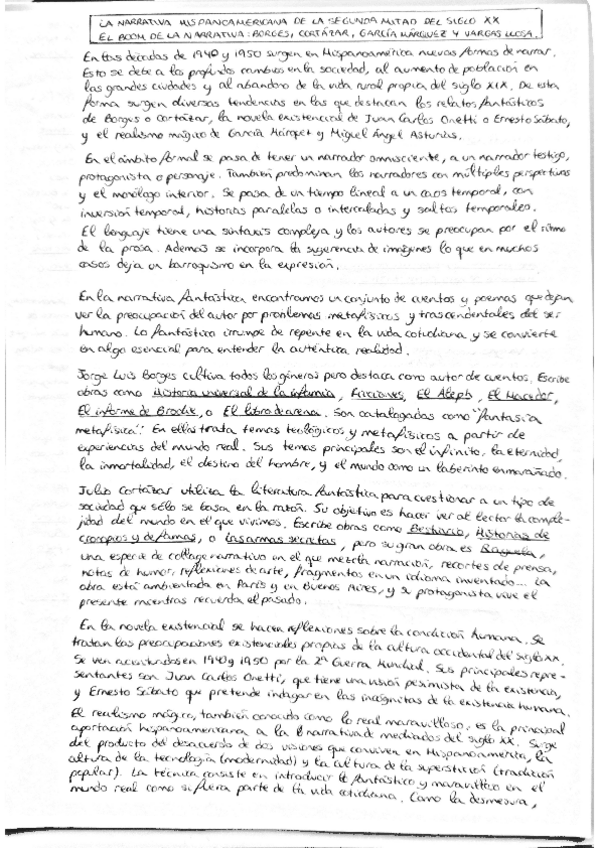 LA NARRATIVA HISPANOAMERICANA DE LA SEGUNDA MITAD DEL SIGLO XX
EL BOOM DE LA NARRATIVA: BORGES, CORTÁZAR, GARCÍA MÁRQUEZ Y VARGAS LLOSA.
En las décadas de 1940 y 1950 surgen en Hispanoamérica nuevas formas de narrar.
Esto se debe a los profundos cambios en la sociedad, al aumento de población en
las grandes ciudades y al abandono de la vida rural propia del siglo XIX. De esta
forma surgen diversas tendencias en las que destacan los relatos fantásticos
de Borges o Cortázar, la novela existencial de Juan Carlos Onetti o Ernesto Sábato,
y el realismo mágico de García Márquez y Miguel Ángel Asturias.
En el ámbito formal se pasa de tener un narrador omnisciente, a un narrador testigo,
protagonista o personaje. También predominan los narradores con múltiples perspectivas
y el monólogo interior. Se pasa de un tiempo lineal a un caos temporal, con
inversión temporal, historias paralelas o intercaladas y saltos temporales.
El lenguaje tiene una sintaxis compleja y los autores se preocupan por el ritmo
de la prosa. Además se incorpora la sugerencia de imágenes lo que en muchos
casos deja un barroquismo en la expresión.
En la narrativa fantástica encontramos un conjunto de cuentos y poemas que dejan
ver la preocupación del autor por problemas metafísicos y trascendentales del ser
humano. Lo fantástico irrumpe de repente en la vida cotidiana y se convierte
en algo esencial para entender la auténtica realidad.
Jorge Luis Borges cultiva todos los géneros pero destaca como autor de cuentos. Escribe
obras como Historia universal de la infamia, Ficciones, El Aleph, El Hacedor,
El informe de Brodie, o El libro de arena. Son catalogadas como "fantasía
metafísica". En ellas trata temas teológicos y metafísicos a partir de
experiencias del mundo real. Sus temas principales son el infinito, la eternidad,
la inmortalidad, el destino del hombre, y el mundo como un laberinto enmarañado.
Julio Cortázar utiliza la literatura fantástica para cuestionar a un tipo de
sociedad que sólo se basa en la razón. Su objetivo es hacer ver al lector la comple-
jidad del mundo en el que vivimos. Escribe obras como Bestiario, Historias de
cronopios y de famas, o Las armas secretas, pero su gran obra es Rayuela,
una especie de collage narrativo en el que mezcla narración, recortes de prensa,
notas de humor, reflexiones de arte, fragmentos en un idioma inventado... La
obra está ambientada en París y en Buenos Aires, y su protagonista vive el
presente mientras recuerda el pasado.
En la novela existencial se hacen reflexiones sobre la condición humana. Se
tratan las preocupaciones existenciales propias de la cultura occidental del siglo XX.
Se ven acentuadas en 1940 y 1950 por la 2ª Guerra Mundial. Sus principales repre-
sentantes son Juan Carlos Onetti, que tiene una visión pesimista de la existencia,
y Ernesto Sábato que pretende indagar en las incógnitas de la existencia humana.
El realismo mágico, también conocido como lo real maravilloso, es la principal
aportación hispanoamericana a la narrativa de mediados del siglo XX. Surge
del producto del desacuerdo de dos visiones que conviven en Hispanoamérica, la
cultura de la tecnología (modernidad) y la cultura de la superstición (tradición
popular). La técnica consiste en introducir lo fantástico y maravilloso en el
mundo real como si fuera parte de la vida cotidiana. Como la desmesura,